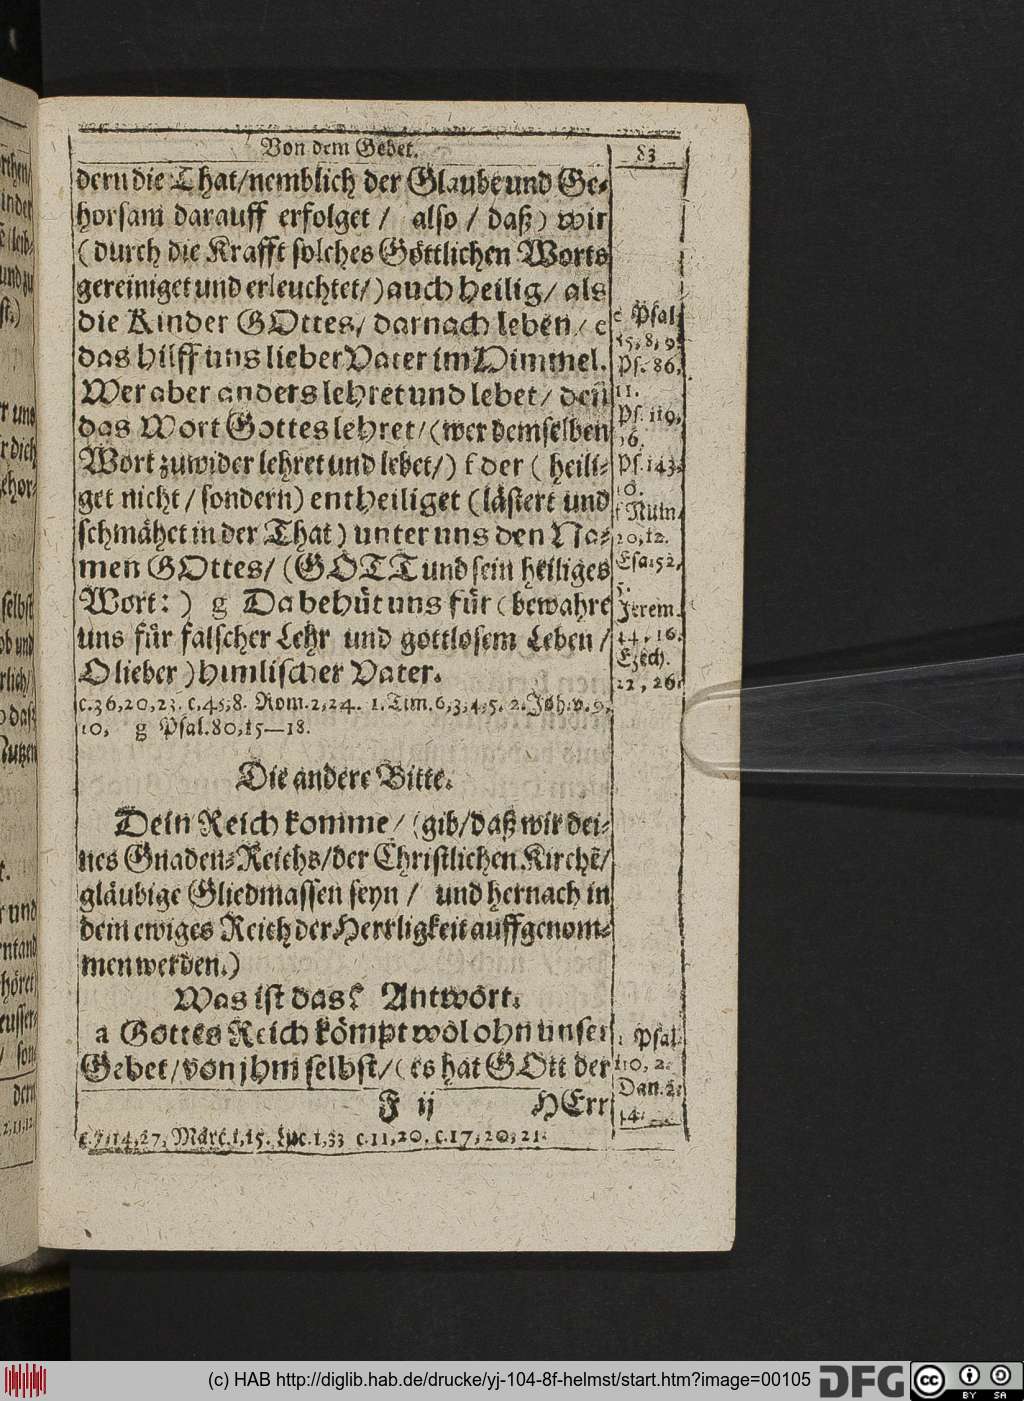 Von dem Gebet.
83
dern die That/nemblich der Glaube und Ge-
horsam darauff erfolget / also / daß) wir
(durch die Krafft solches Göttlichen Worts
gereiniget und erleuchtet/) auch heilig/ als
die Kinder GOttes/ darnach leben/ e
das hilff uns lieber Vater im Himmel.
Wer aber anders lehret und lebet/ deñ
das Wort Gottes lehret/(wer demselben
Wort zuwider lehret und lebet/) f der ( heili-
get nicht / sondern) entheiliget (lästert und
schmähet in der That) unter uns den Na-
men GOttes/ (GOTT und sein heiliges
Wort: ) g Da behüt uns für (bewahre
uns für falscher Lehr und gottlosem Leben /
O lieber ) himlischer Vater.
c.36,20,23. c.45,8. Rom.2,24. 1.Tim.6,3,4,5. 2.Joh.v.9,
10, g Psal.80,15—18.
e Psal.
15,8,9.
Ps. 86.
11.
Ps. 119,
Ps. 143.
10.
f Num.
20,12.
Esa.52,
5.
Jerem.
14, 16.
Ezech.
22, 26.
Die andere Bitte.
Dein Reich komme/ (gib/daß wir dei-
nes Gnaden-Reichs/der Christlichen Kirchẽ/
gläubige Gliedmassen seyn / und hernach in
dein ewiges Reich der Herrligkeit auffgenom-
men werden.)
Was ist das? Antwort.
a Gottes Reich kömpt wol ohn unser
Gebet/von jhm selbst/( es hat GOtt der
F ij HErr
Psal.
110, 2.
Dan. 2.
14.
c.7,14,27, Marc.1,15. Luc.1,33 c.11,20. c.17,20,21.
(c) HAB http://diglib.hab.de/drucke/yj-104-8f-helmst/start.htm?image=00105
DFG
cc
BY SA